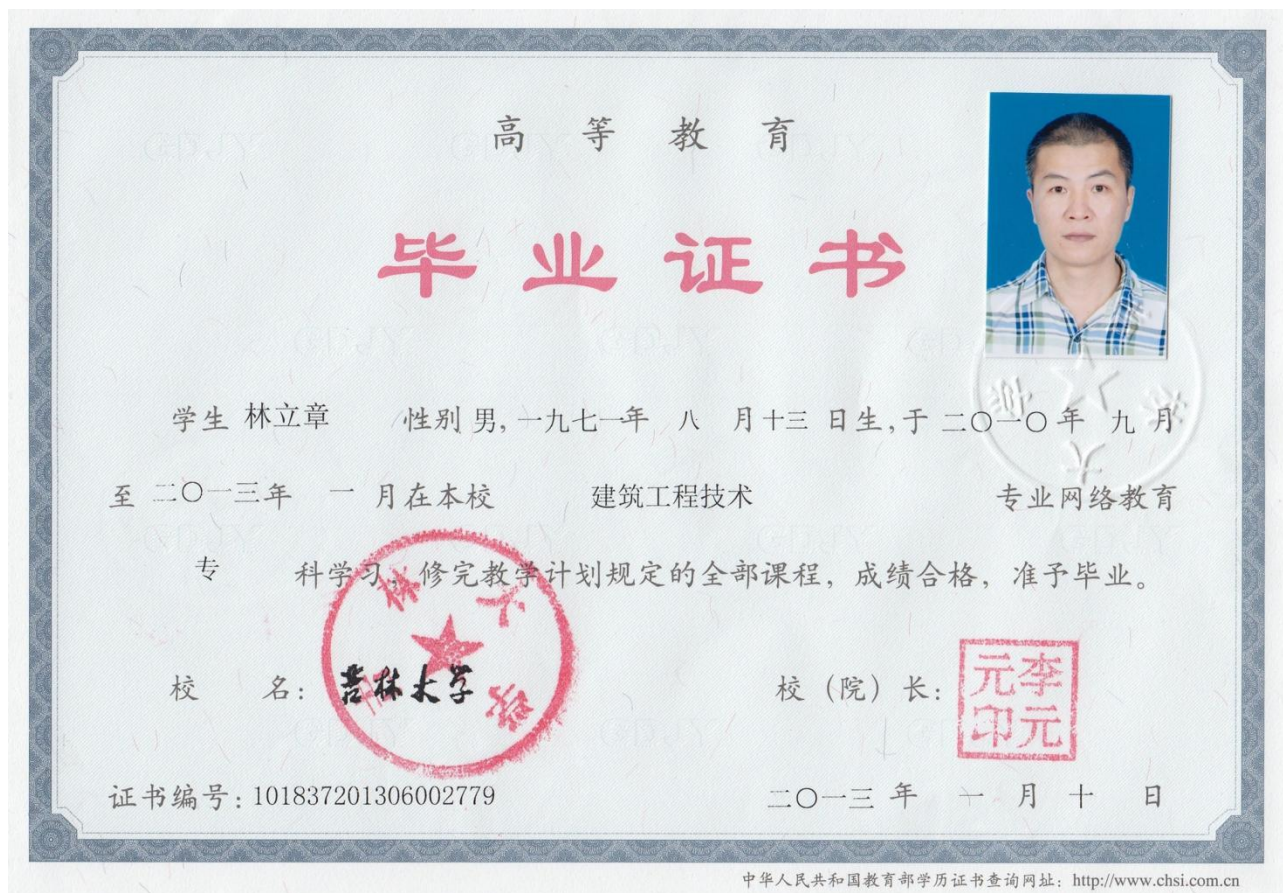 高等教育
毕业证书
学生 林立章 性别 男, 一九七一年 八 月 十三 日生, 于 二〇一〇年 九 月
至 二〇一三年 一 月在本校 建筑工程技术 专业网络教育
专 科学习, 修完教学计划规定的全部课程, 成绩合格, 准予毕业。
校 名: 吉林大学
吉林大学
校 (院) 长:
李元元印
证书编号: 101837201306002779
二〇一三 年 一 月 十 日
中华人民共和国教育部学历证书查询网址: http://www.chsi.com.cn